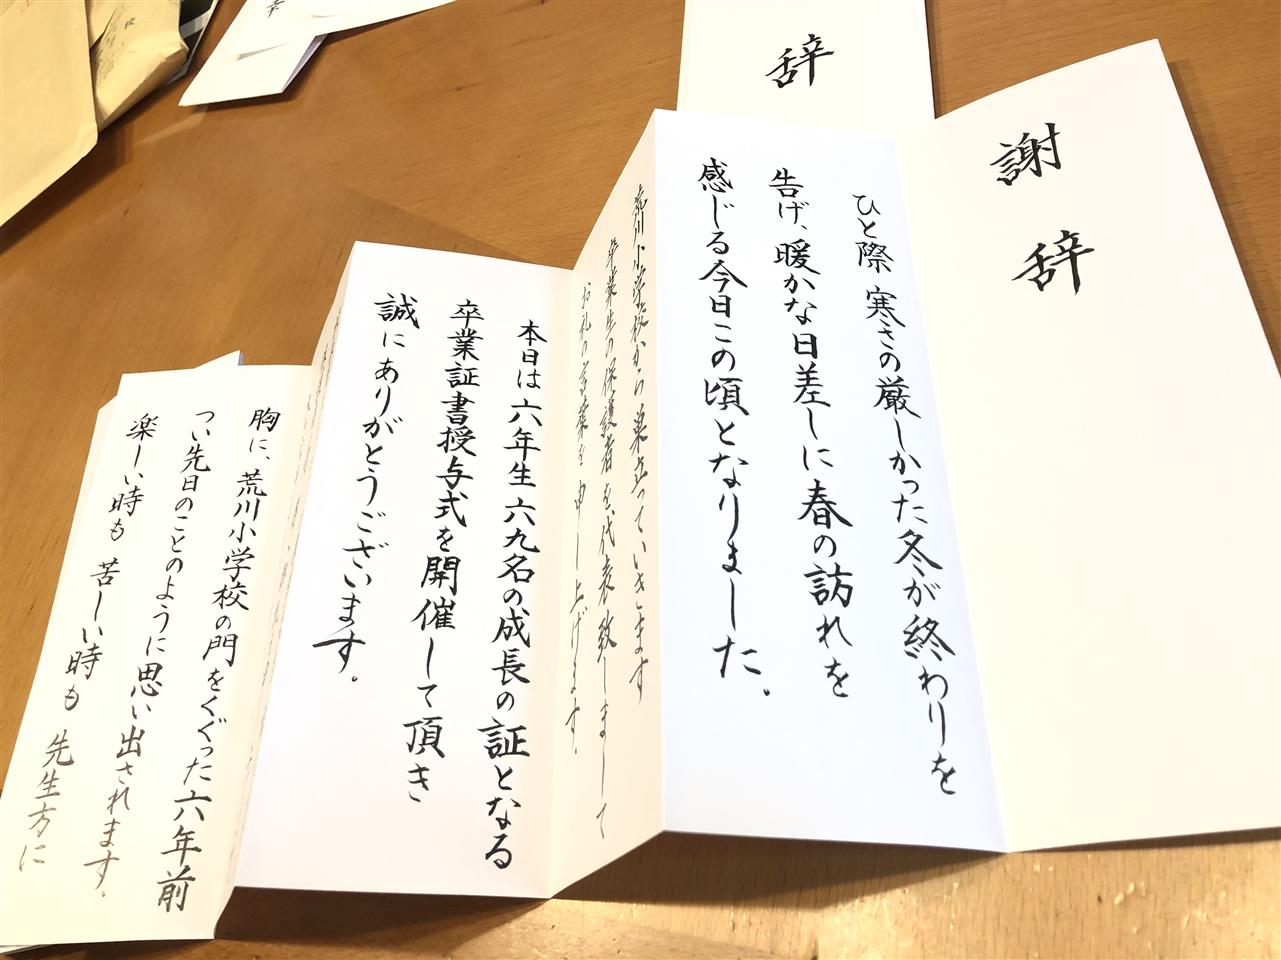 謝辞
ひと際寒さの厳しかった冬が終わりを
告げ、暖かな日差しに春の訪れを
感じる今日この頃となりました。
荒川小学校から巣立っていきます
卒業生の保護者を代表致しまして
お礼の言葉を申し上げます。
本日は六年生六九名の成長の証となる
卒業証書授与式を開催して頂き
誠にありがとうございます。
胸に、荒川小学校の門をくぐった六年前
つい先日のことのように思い出されます。
楽しい時も苦しい時も先生方に
辞